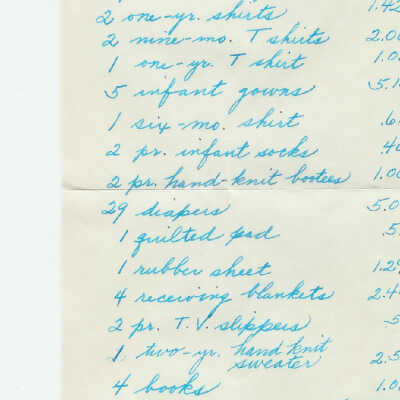 2 one-yr. shirts 1.42
2 nine-mo. T shirts 2.00
1 one-yr. T shirt 1.0
5 infant gowns 5.1
1 six-mo. shirt .6
2 pr. infant socks .40
2 pr. hand-knit bootees 1.00
29 diapers 5.0
1 quilted pad .5
1 rubber sheet 1.29
4 receiving blankets 2.4
2 pr. T.V. slippers .5
1 two-yr. hand knit
sweater 2.5
4 books 1.0